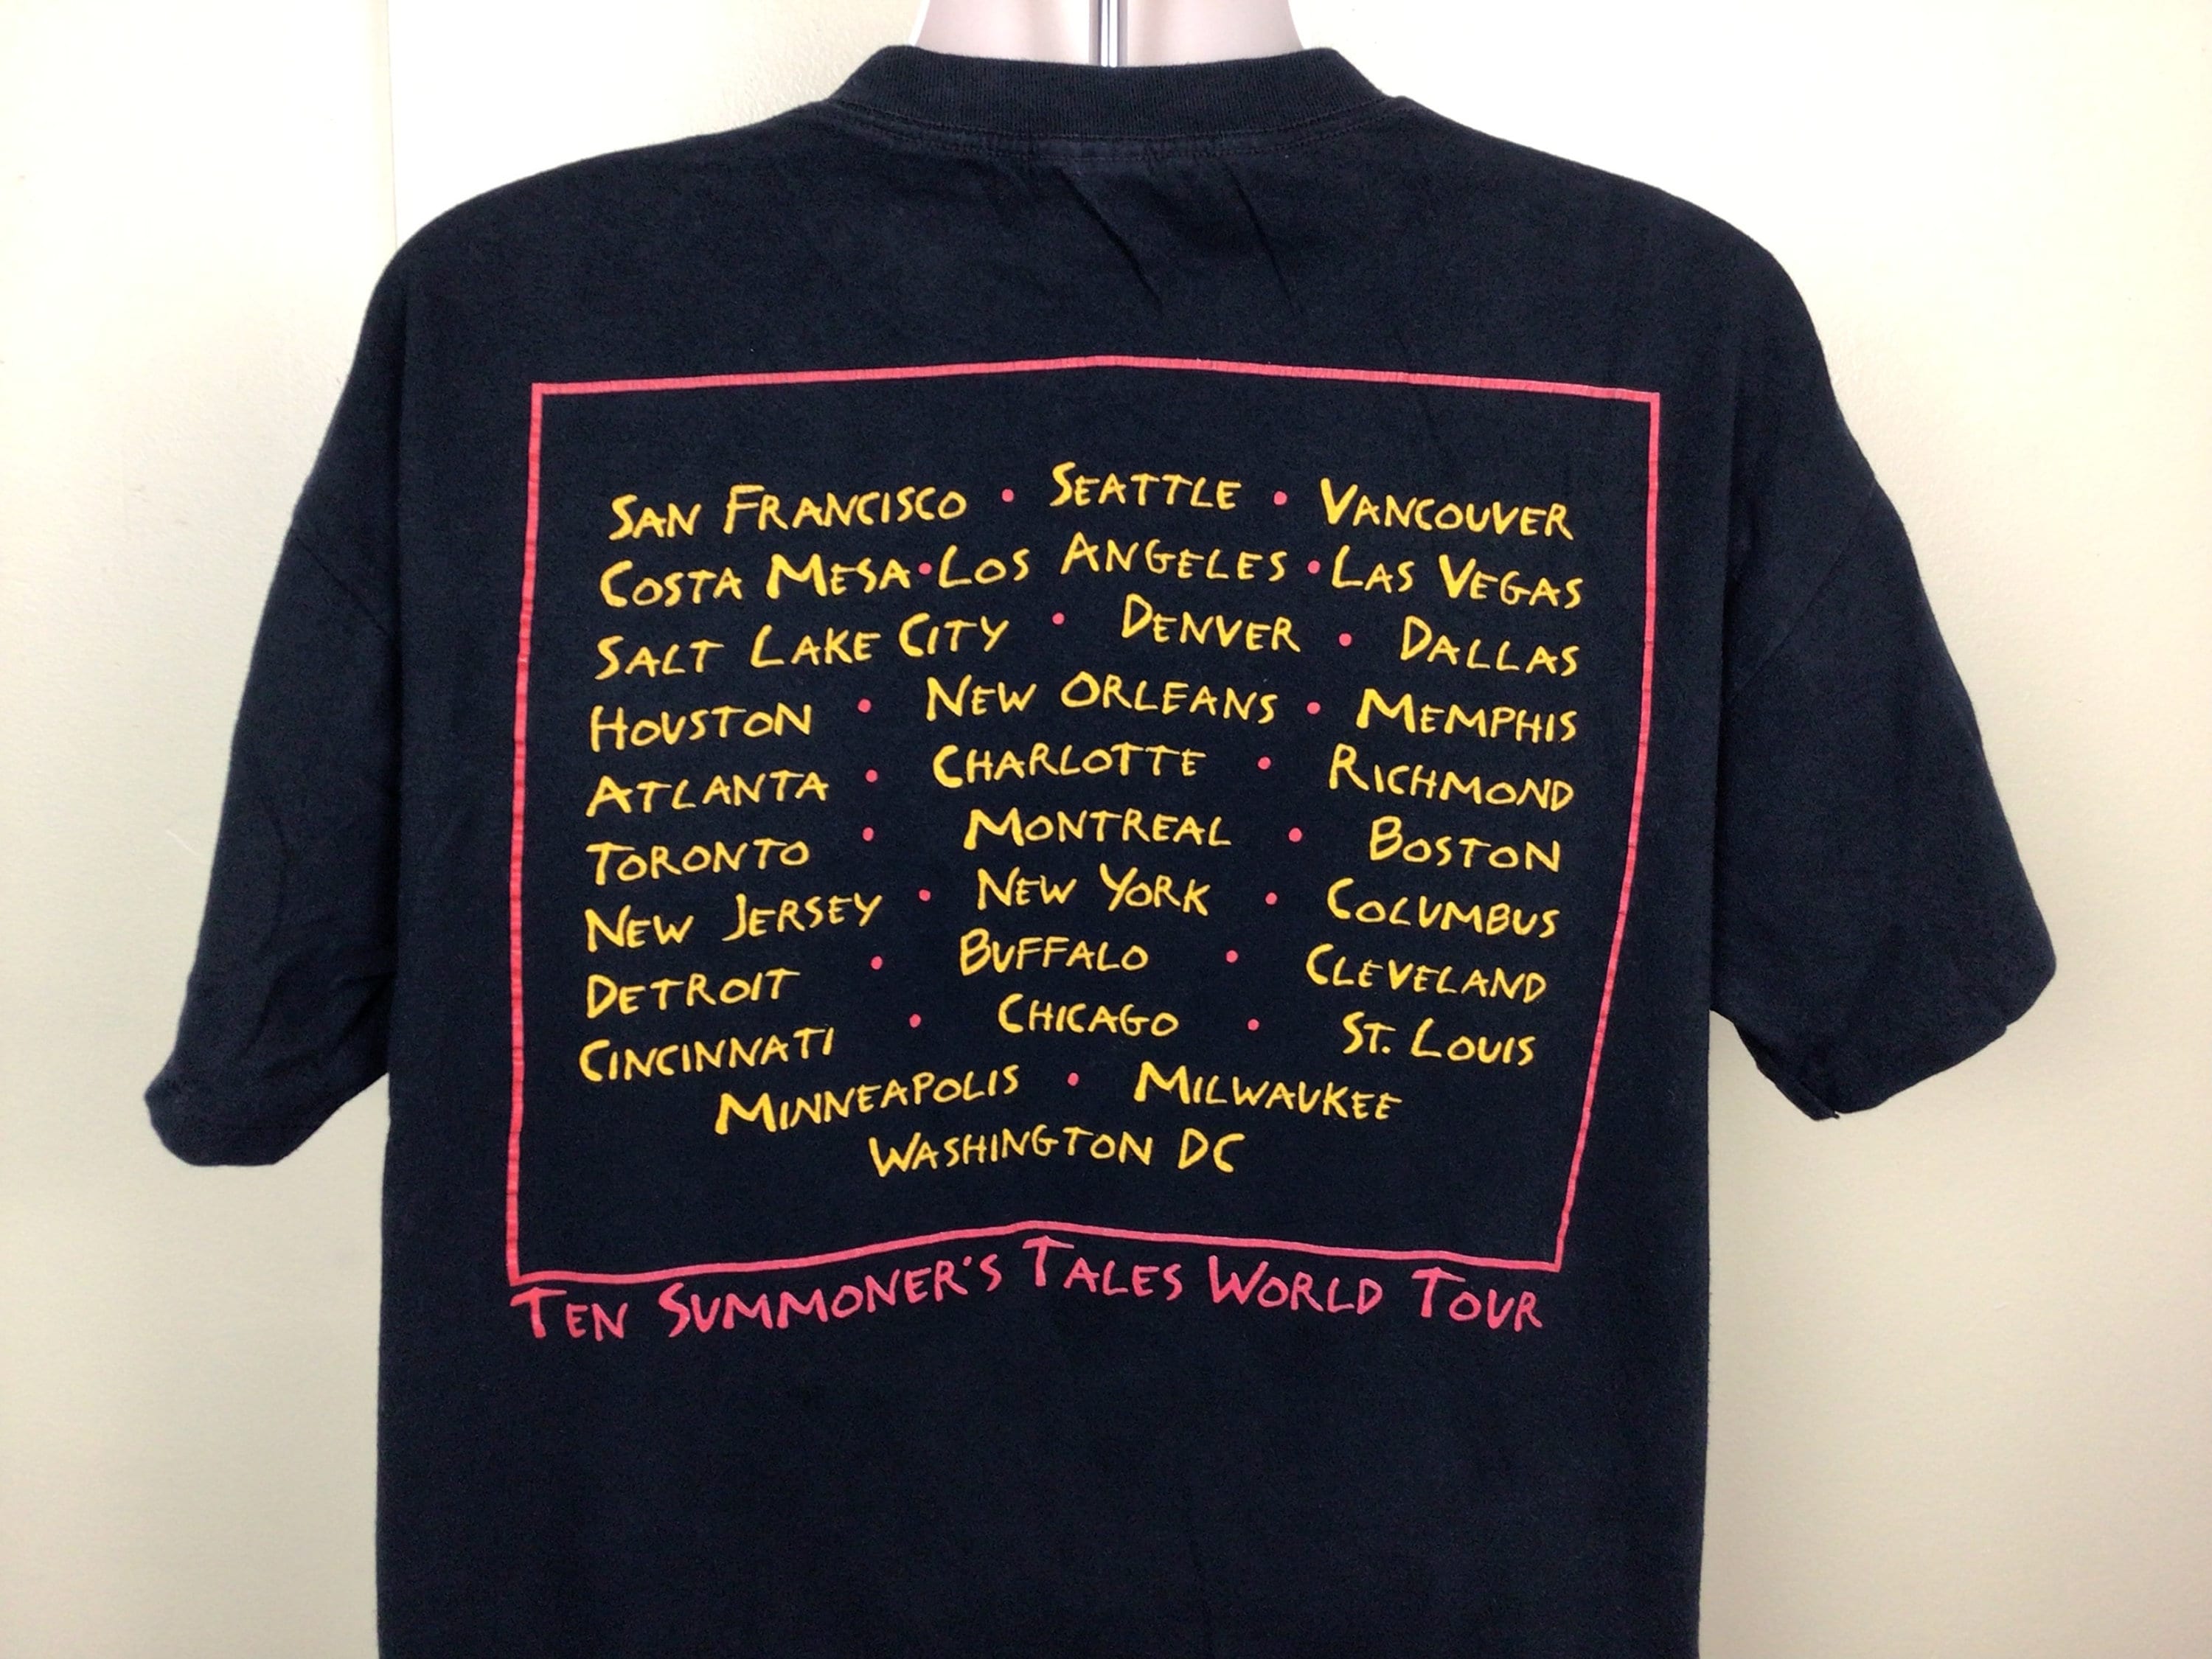 San Francisco • Seattle • Vancouver
Costa Mesa • Los Angeles • Las Vegas
Salt Lake City • Denver • Dallas
Houston • New Orleans • Memphis
Atlanta • Charlotte • Richmond
Toronto • Montreal • Boston
New Jersey • New York • Columbus
Detroit • Buffalo • Cleveland
Cincinnati • Chicago • St. Louis
Minneapolis • Milwaukee
Washington DC
Ten Summoner's Tales World Tour